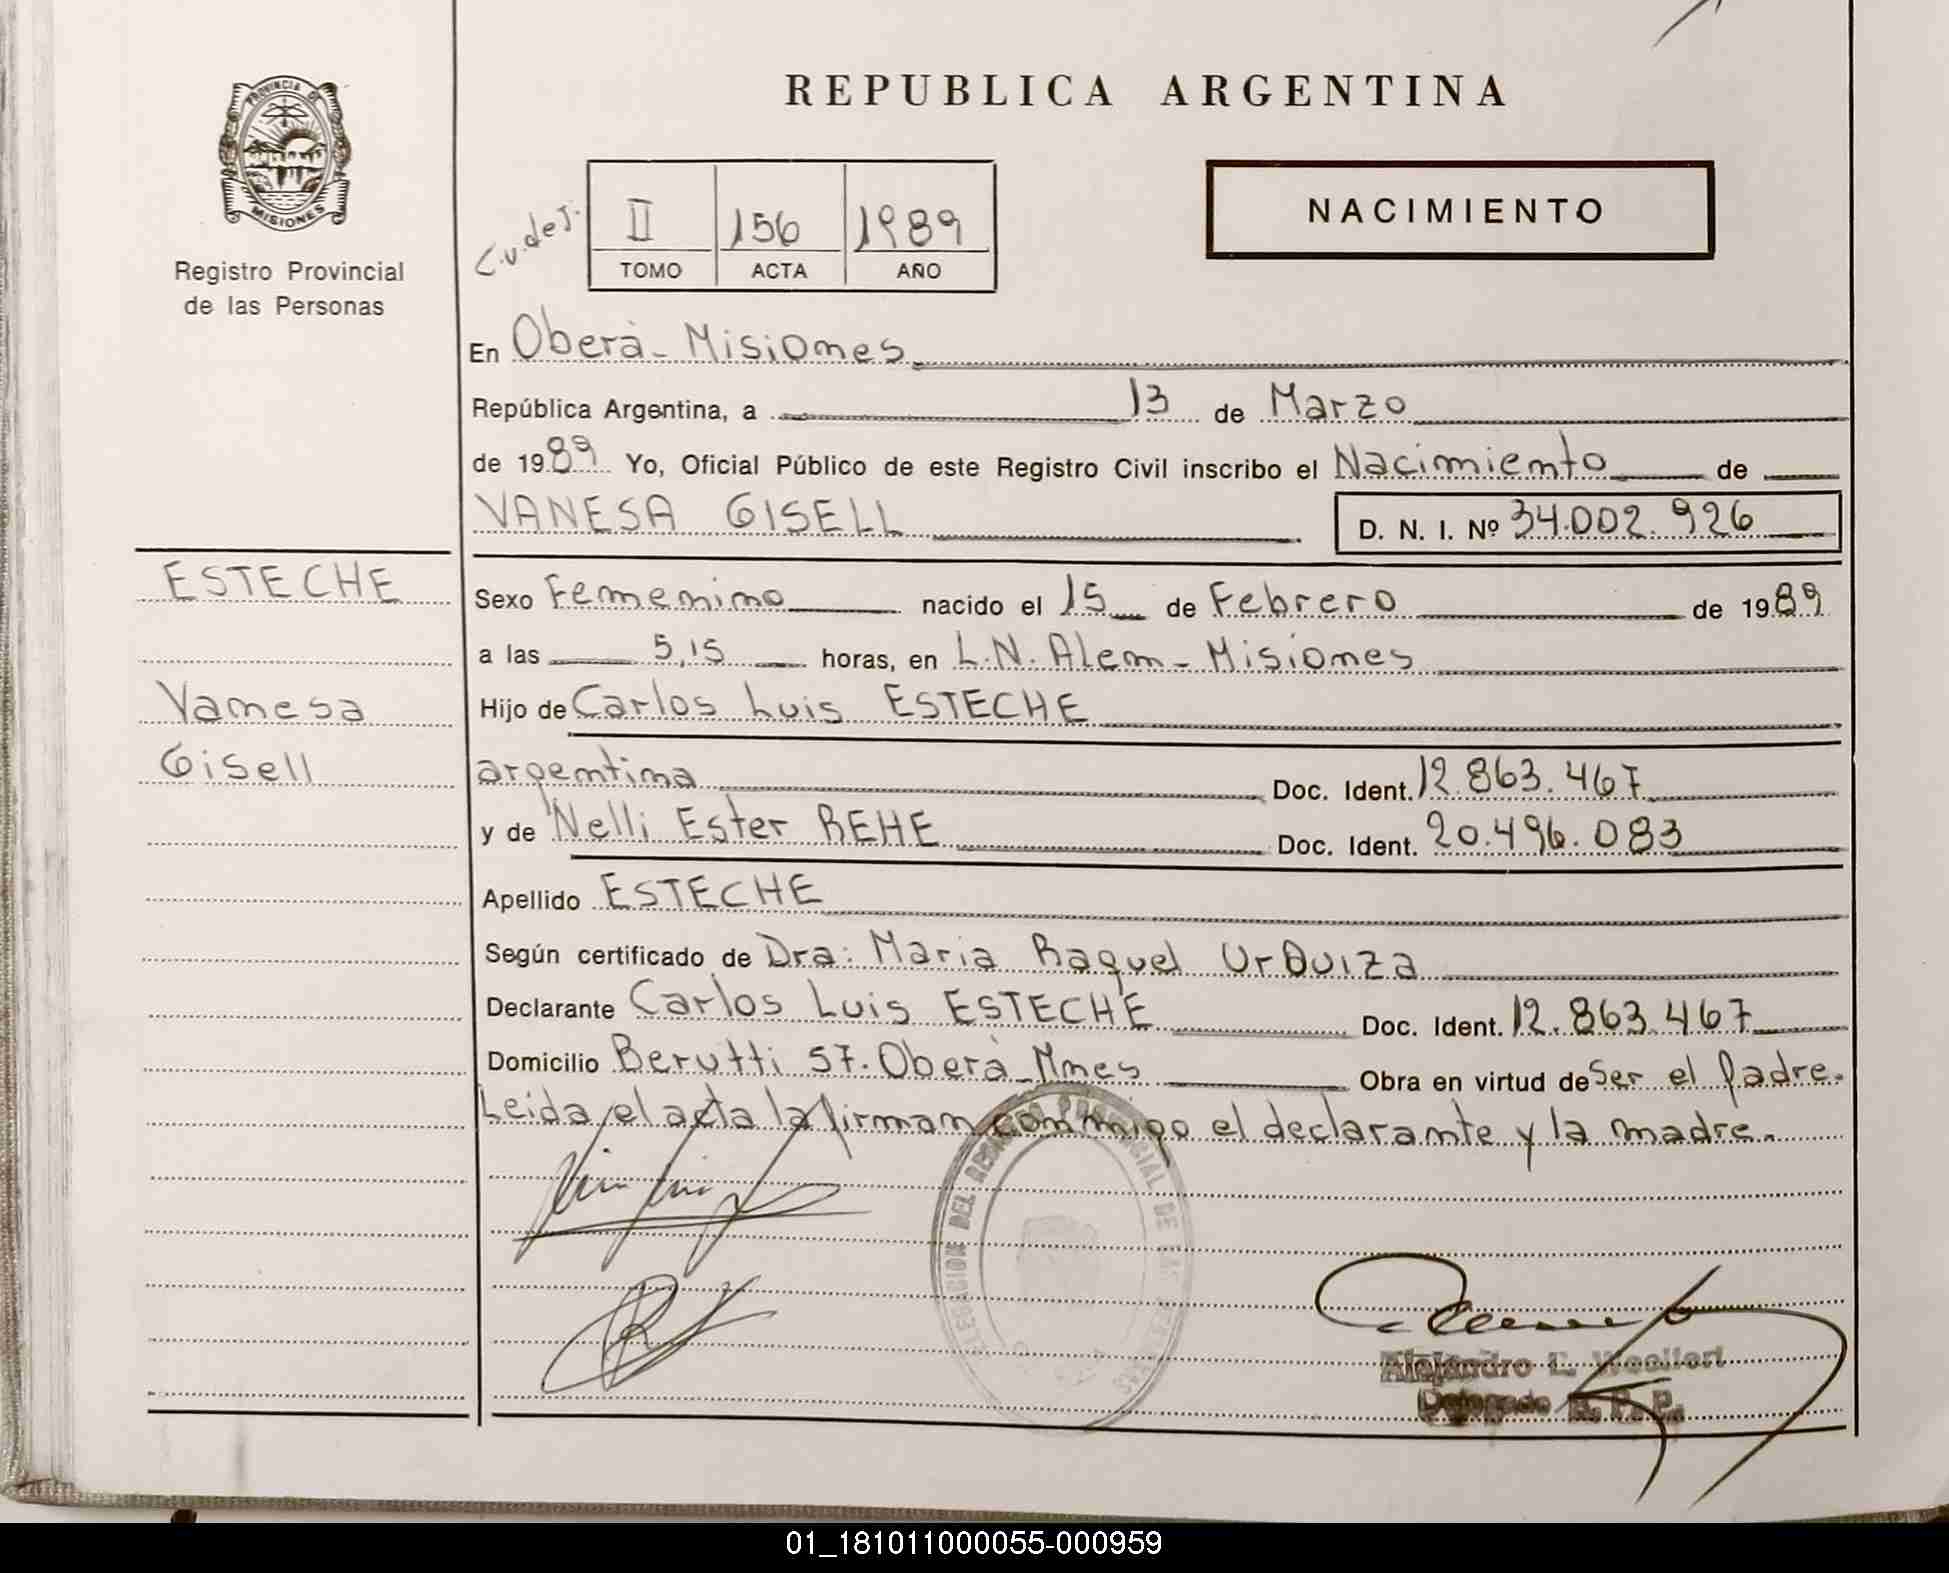 REPUBLICA ARGENTINA
PROVINCIA DE
MISIONES
Registro Provincial
de las Personas
C.v.des.
II 156 1989
TOMO ACTA AÑO
NACIMIENTO
En Oberà - Misiones
República Argentina, a 13 de Marzo
de 1989 Yo, Oficial Público de este Registro Civil inscribo el Nacimiento de
VANESA GISELL D. N. I. Nº 34.002.926
ESTECHE
Vanesa
Gisell
Sexo Femenino nacido el 15 de Febrero de 1989
a las 5,15 horas, en L.N. Alem - Misiones
Hijo de Carlos Luis ESTECHE
argentina Doc. Ident. 12.863.467
y de Nelli Ester REHE Doc. Ident. 20.496.083
Apellido ESTECHE
Según certificado de Dra: Maria Raquel UrQuiza
Declarante Carlos Luis ESTECHE Doc. Ident. 12.863.467
Domicilio Berutti 57. Oberà - Mnes Obra en virtud de Ser el Padre.
Leida el acta la firman conmigo el declarante y la madre.
DEL REGISTRO PROVINCIAL DE LAS
Alejandro L.
Delegado R. P. P.
01_181011000055-000959